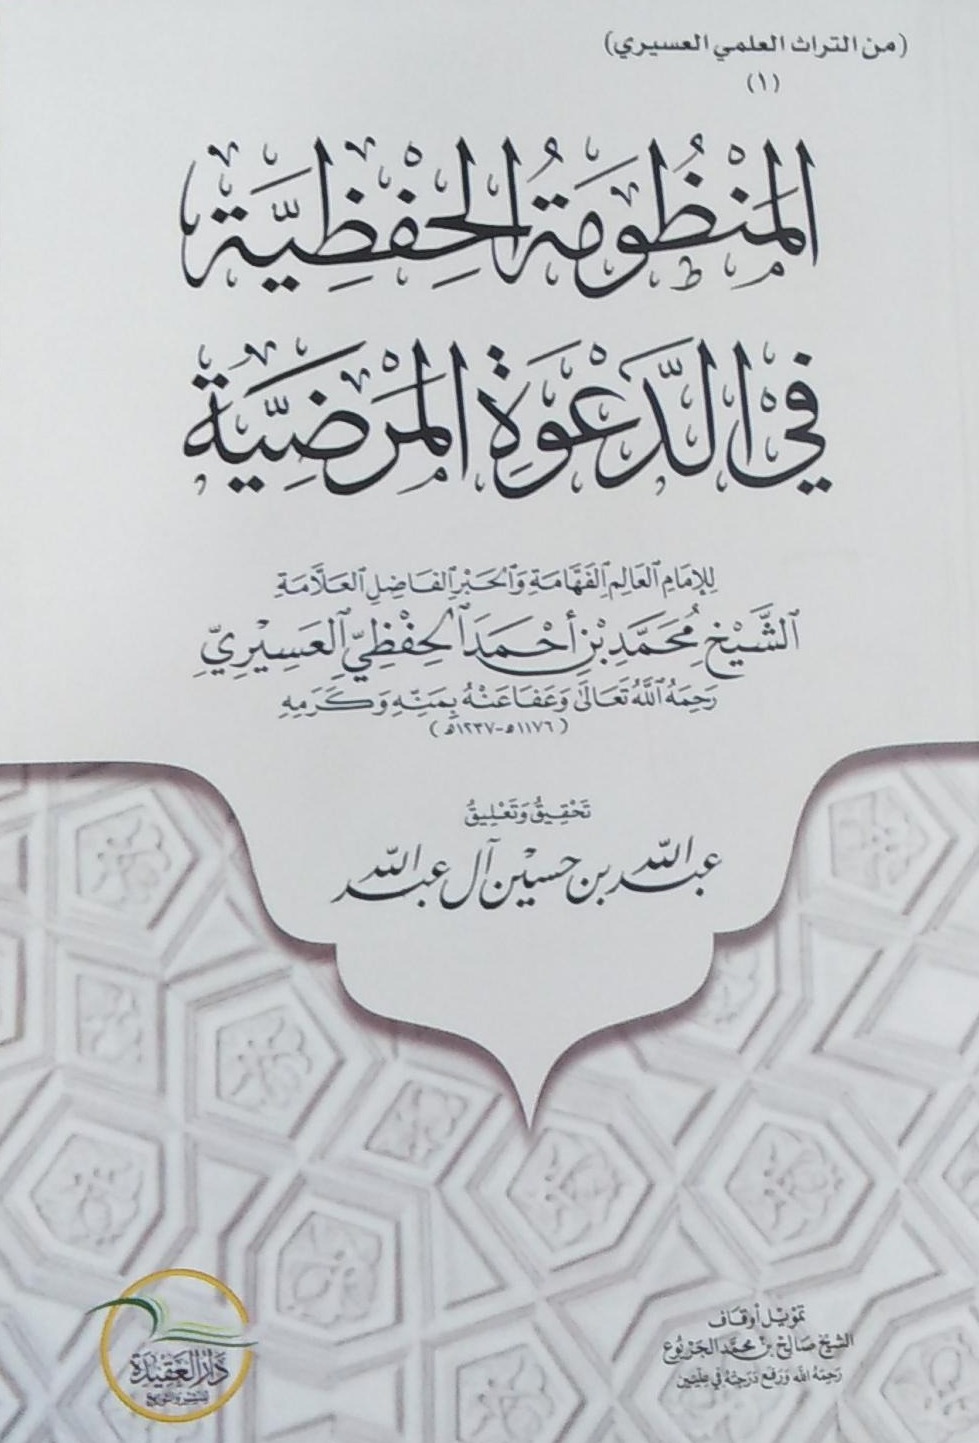 (من التراث العلمي العسيري)
(١)
المَنْظُومَةُ الحِفْظِيَّة
في الدَّعْوَةِ المَرْضِيَّة
للإِمَامِ العَالِمِ الفَهَّامَةِ وَالحَبْرِ الفَاضِلِ العَلَّامَةِ
الشَّيْخِ مُحَمَّدِ بْنِ أَحْمَدَ الحِفْظِيِّ العَسِيْرِيِّ
رَحِمَهُ اللَّهُ تَعَالَى وَعَفَا عَنْهُ بِمَنِّهِ وَكَرَمِهِ
(١١٧٦هـ-١٢٣٧هـ)
تَحْقِيقُ وَتَعْلِيقُ
عبد اللّه بن حسين آل عبد اللّه
تمويل أوقاف
الشيخ صالح بن محمد الجربوع
رحمه الله ورفع درجته في عليين
دَارُ العَقِيدَة
للنشر والتوزيع